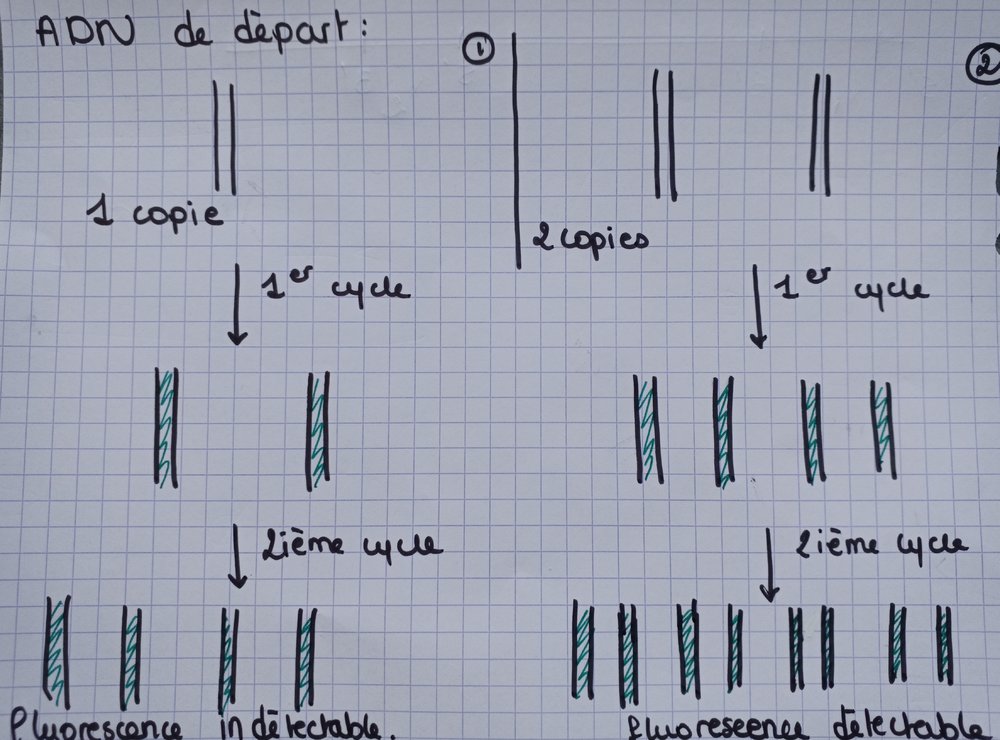 ADN de dèpart :
①
②
1 copie
2 copies
1er cycle
1er cycle
2ième cycle
2ième cycle
fluorescence indètectable.
fluoreseence dètectable